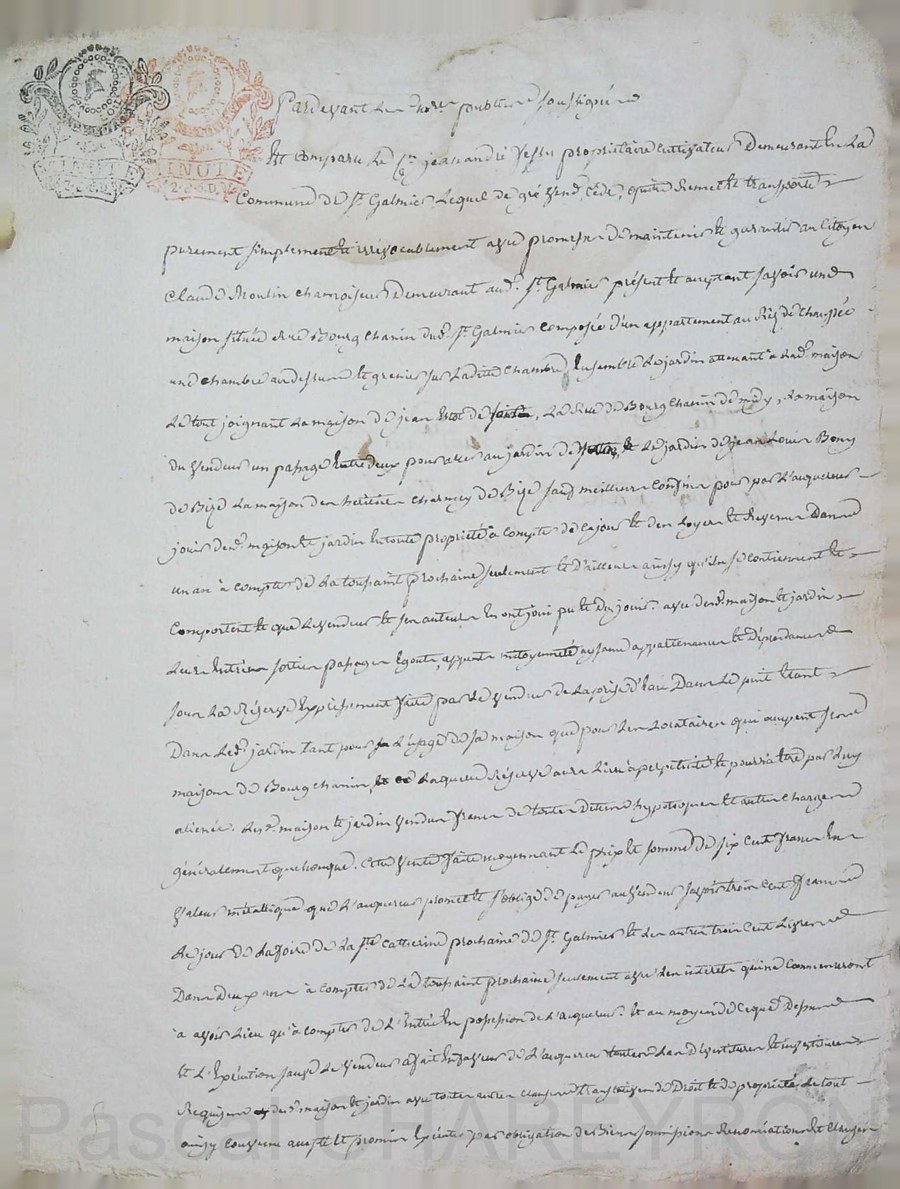 MINUTE MINUTE
2.C.6.D. 2.C.6.D.
Pardevant Les no.res publics soussignés
Est comparu Le C.n jean andré propriétaire cultivateur Demeurant En La
Commune de S.t Galmier Lequel de gré vend, cède, quitte Remet et transporte
purement simplement et irrévocablement avec promesse de maintenir et garantir au Citoyen
Claude Moulin chamoiseur Demeurant aud.t S.t Galmier présent et acceptant savoir une
maison située rue Bourgchanin dud.t S.t Galmier composée d'un appartement au Réz de chaussée
une chambre audessus et grenier sur Ladite chambre, Ensemble Le jardin attenant à Lad.e maison
Le tout joignant La maison de jean de La Rue de Bourgchanin de midy, La maison
du vendeur un passage Entre deux pour aller au jardin de Le jardin de jean Louis Bony
de Bize La maison des héritiers charmey de Bize sauf meilleurs confins pour par L'acquereur
jouir desd. maison et jardin En toute propriété à compter de ce jour et des Loyers et Revenus Dans
un an à compter de La toussaint prochaine seulement et D'ailleurs ainsy qu'ils se contiennent et
Comportent et que Le vendeur et ses auteurs En ont joui pu et Du jouir. avec desd. maison et jardin
Leurs Entrées sorties passages Egouts, appents mitoyenneté aysances appartenances et Dépendances
sous La Réserve Expressement faite par Le vendeur de La prise d'eau Dans Le puit Etant
Dans Led.t jardin tant pour L'usage de sa maison que pour Les Locataires qui occupent
maison de Bourgchanin, Laquelle Réserve aura Lieu à perpétuité et pourra être par Luy
aliénée. Lesd. maison et jardin vendus francs de toutes Dettes hypotèques et autres charges
généralement quelconques. Cette vente faite moyennant Le prix et somme de six Cent francs En
valeur métallique que L'acquereur promet et s'oblige de payer au vendeur savoir trois Cent francs
Le jour de La foire de La S.te Catherine prochaine de S.t Galmier et Les autres trois Cent Livres
Dans deux ans à compter de La toussaint prochaine seulement avec Les interets qui ne Commenceront
à avoir Lieu qu'à compter de L'Entrée En possession de L'acquereur. Et au moyen de Ce que Dessus
et L'Exécution sauve Le vendeur a fait En faveur de L'acquereur toutes Les Devestitures et investitures
Requises desd. maison et jardin avec toutes autres clauses translatives de Droit et de propriété, Le tout
ainsy Convenu accepté et promis Exécuter par obligation de Biens soumissions Renonciations et Clauses
Pascal CHAREYRON